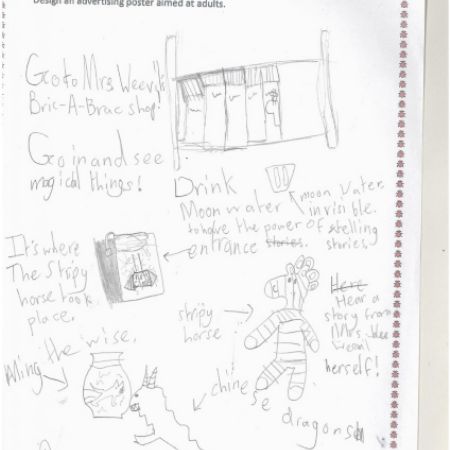 Design an advertising poster aimed at adults.
Go to Mrs Weevil's
Bric-A-Brac shop!
Go in and see
magical things!
Drink
Moon water
to have the power of stelling
stories.
moon vater
invisible.
entrance stories.
It's where
The Stripy
horse took
place.
stripy
horse
Here
Hear a
story from
Mrs
herself!
Ming the wise.
chinese
dragons